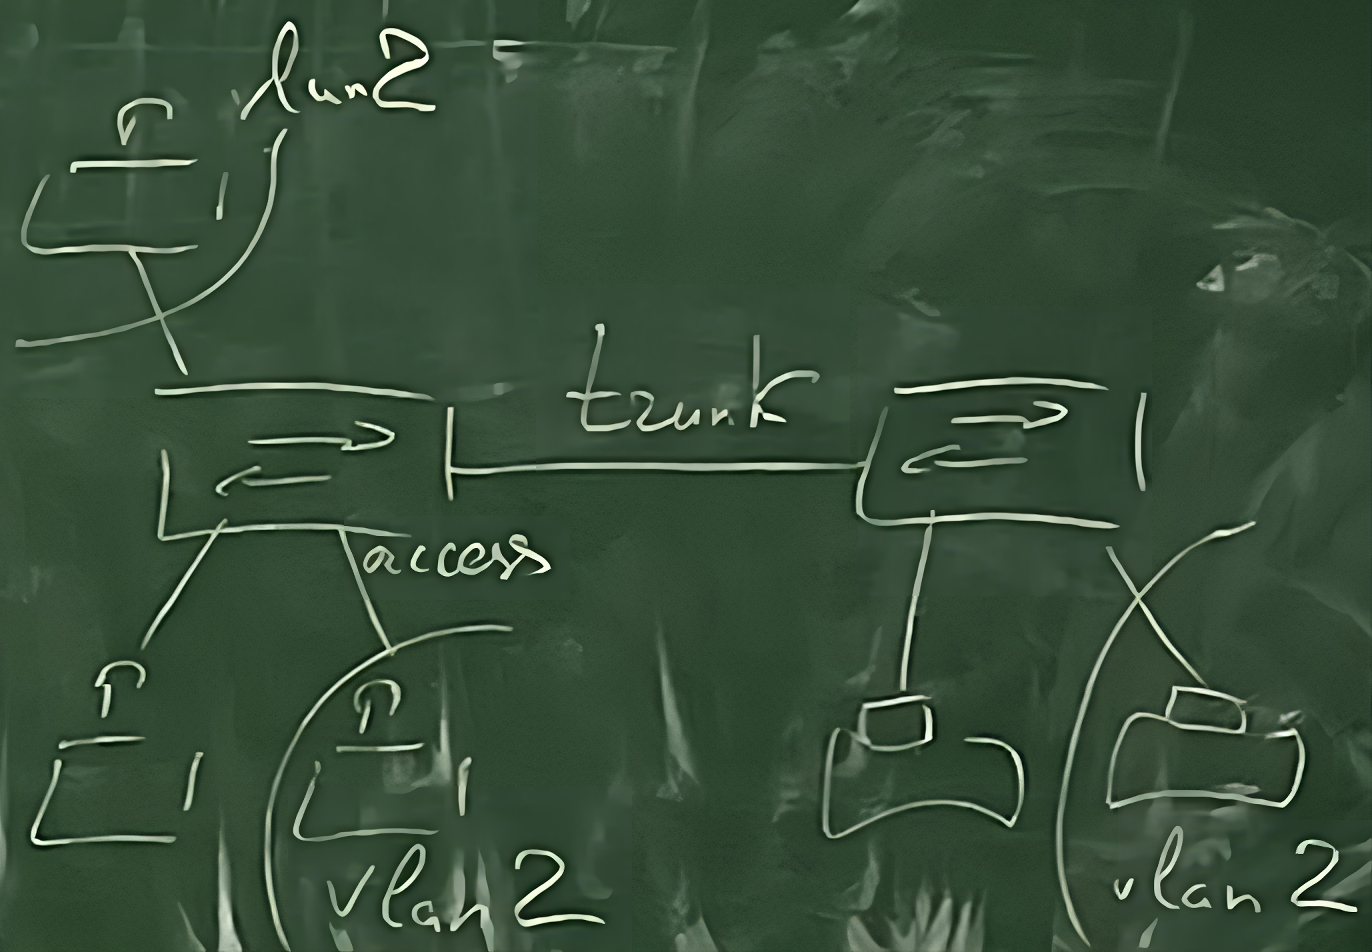 vlan2
trunk
access
vlan 2
vlan 2